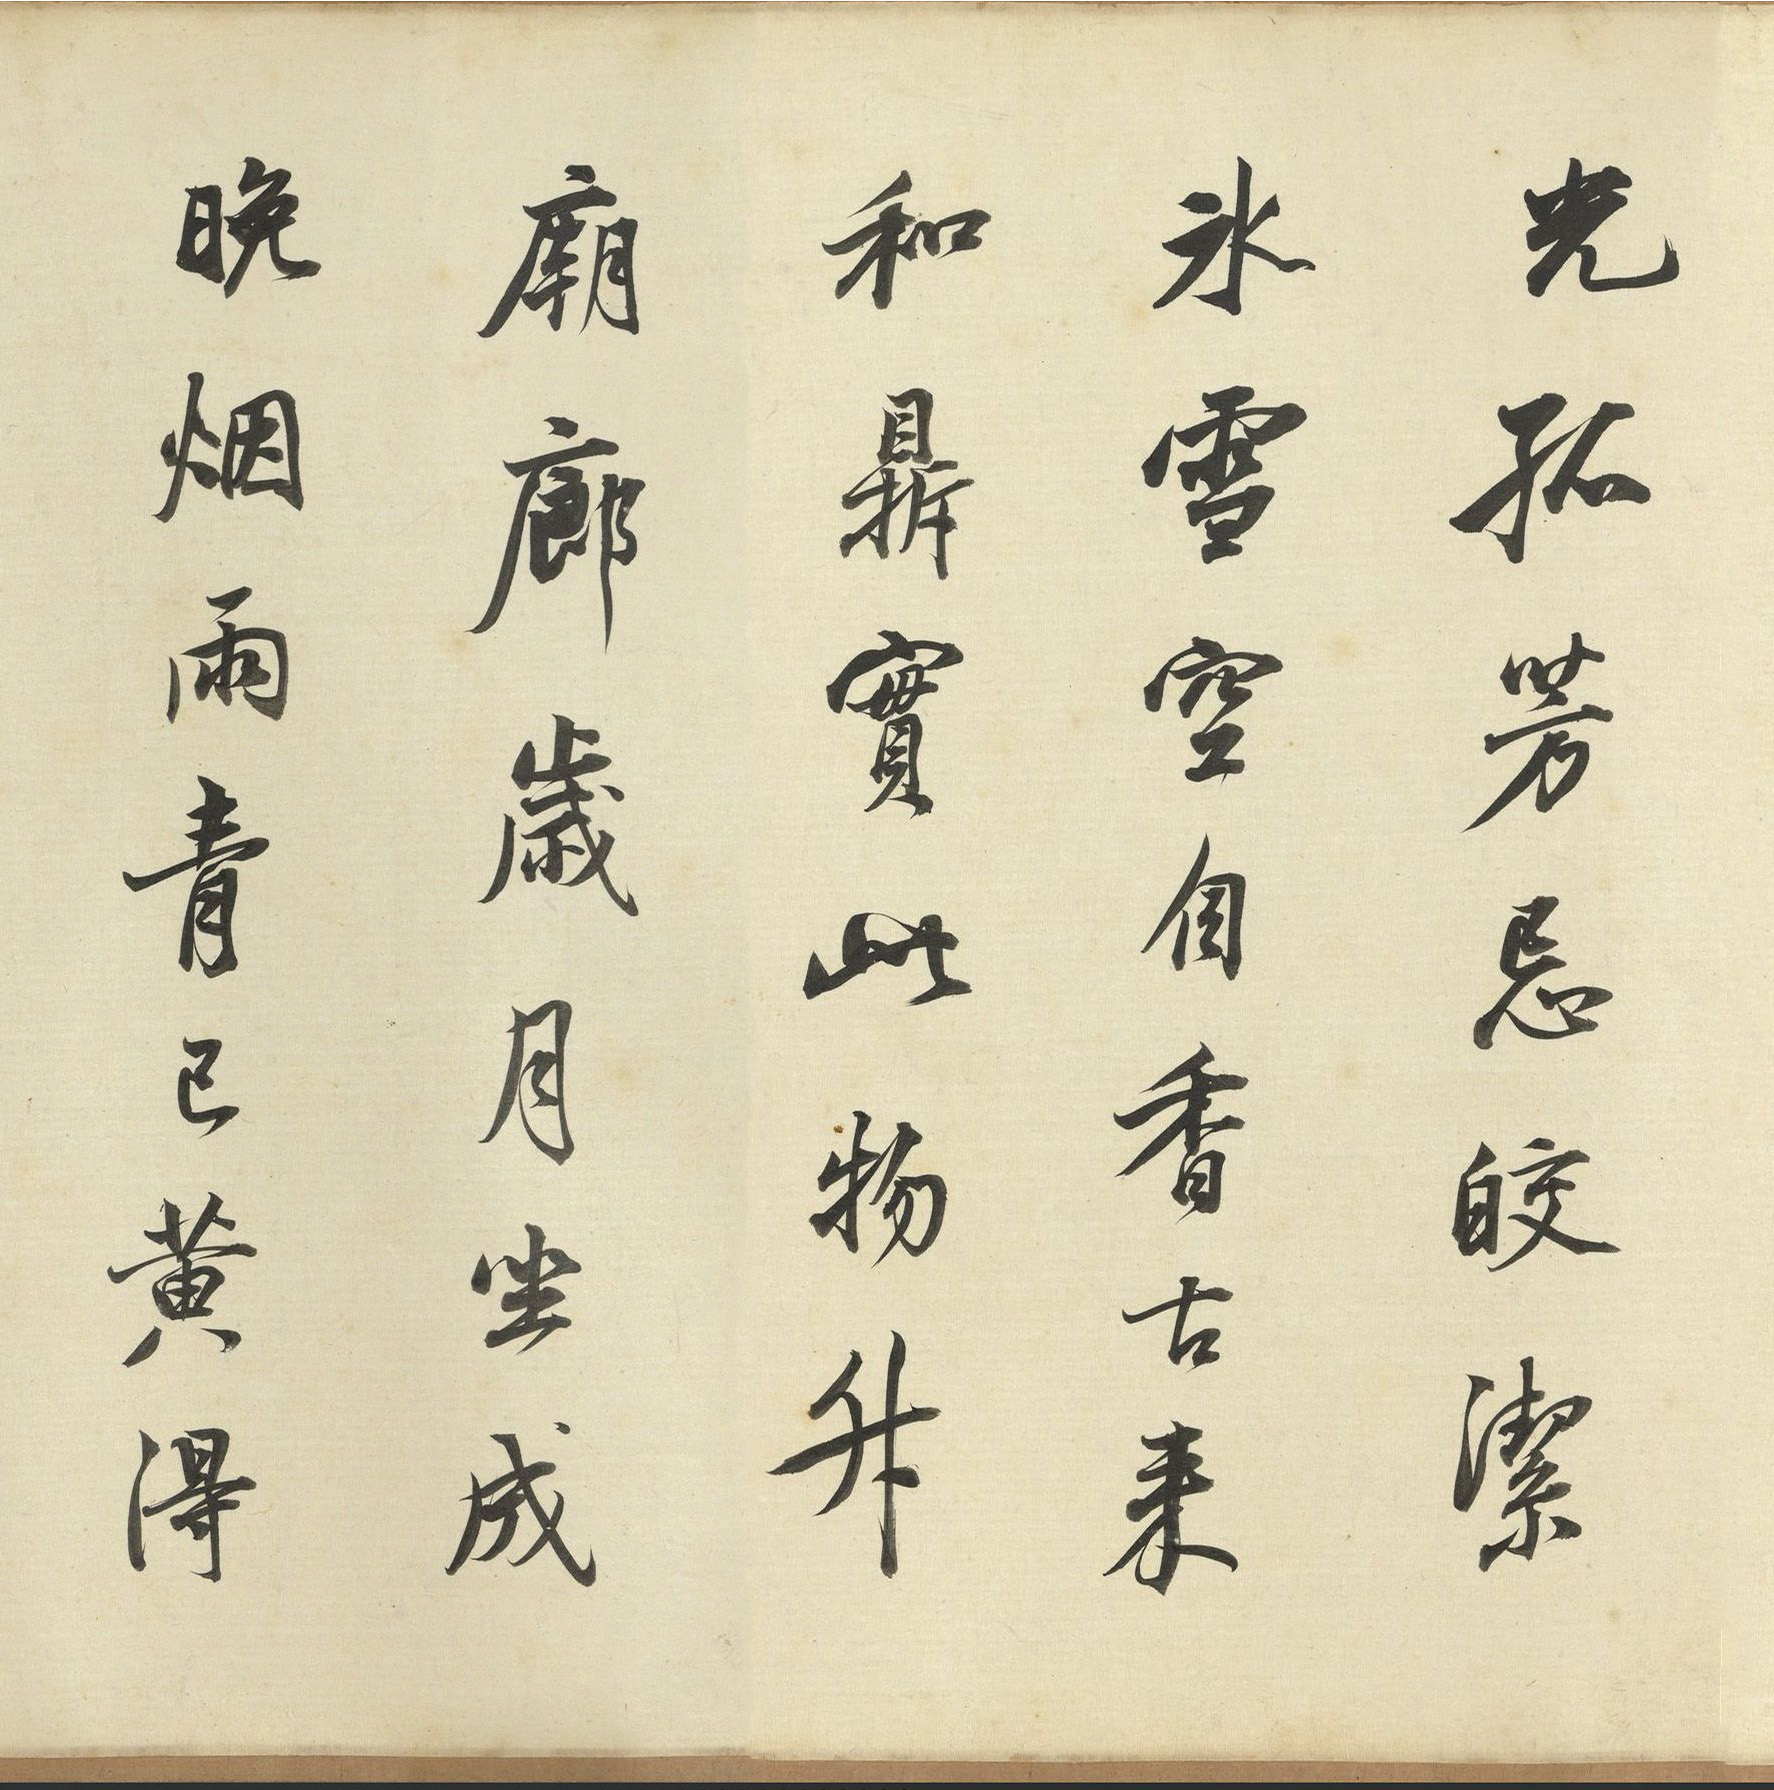 光孤芳忌皎潔
冰雪空自香古来
和鼎實此物升
廟廊歲月坐成
晚烟雨青已黄得